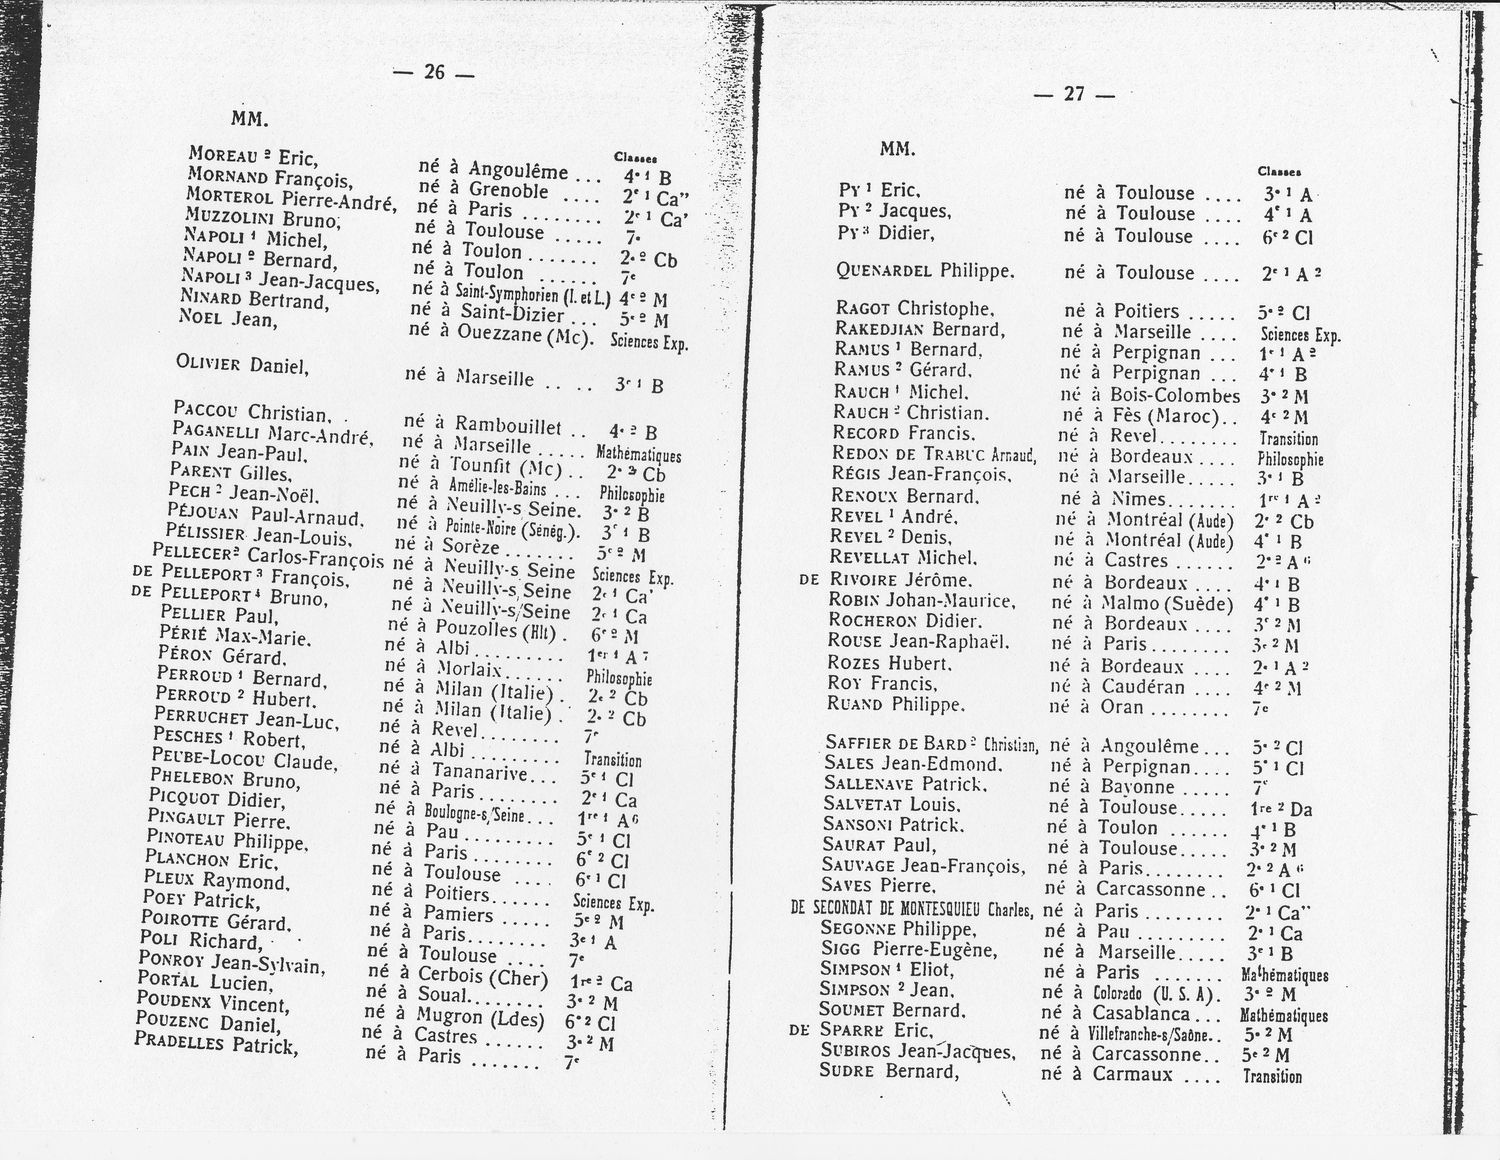 — 26 —
MM.
Classes
MOREAU 2 Eric, né à Angoulême ... 4e 1 B
MORNAND François, né à Grenoble .... 2e 1 Ca"
MORTEROL Pierre-André, né à Paris ........ 2e 1 Ca'
MUZZOLINI Bruno, né à Toulouse ..... 7e
NAPOLI 1 Michel, né à Toulon ....... 2e 2 Cb
NAPOLI 2 Bernard, né à Toulon ...... 7e
NAPOLI 3 Jean-Jacques, né à Saint-Symphorien (I. et L.) 4e 2 M
NINARD Bertrand, né à Saint-Dizier ... 5e 2 M
NOEL Jean, né à Ouezzane (Mc). Sciences Exp.
OLIVIER Daniel, né à Marseille .. .. 3e 1 B
PACCOU Christian, né à Rambouillet .. 4e 2 B
PAGANELLI Marc-André, né à Marseille ..... Mathématiques
PAIN Jean-Paul, né à Tounfit (Mc) .. 2e 2 Cb
PARENT Gilles, né à Amélie-les-Bains ... Philosophie
PECH 2 Jean-Noël, né à Neuilly-s Seine. 3e 2 B
PÉJOUAN Paul-Arnaud, né à Pointe-Noire (Sénég.). 3e 1 B
PÉLISSIER Jean-Louis, né à Sorèze ....... 5e 2 M
PELLECER 2 Carlos-François né à Neuilly-s, Seine Sciences Exp.
DE PELLEPORT 3 François, né à Neuilly-s, Seine 2e 1 Ca'
DE PELLEPORT 4 Bruno, né à Neuilly-s/Seine 2e 1 Ca
PELLIER Paul, né à Pouzolles (Hlt) . 6e 2 M
PÉRIÉ Max-Marie, né à Albi ......... 1er 1 A 7
PÉRON Gérard, né à Morlaix...... Philosophie
PERROUD 1 Bernard, né à Milan (Italie) . 2e 2 Cb
PERROUD 2 Hubert, né à Milan (Italie) . 2e 2 Cb
PERRUCHET Jean-Luc, né à Revel........ 7e
PESCHES 1 Robert, né à Albi ......... Transition
PEUBE-LOCOU Claude, né à Tananarive... 5e 1 Cl
PHELEBON Bruno, né à Paris........ 2e 1 Ca
PICQUOT Didier, né à Boulogne-s/Seine... 1re 1 A6
PINGAULT Pierre, né à Pau ........ 5e 1 Cl
PINOTEAU Philippe, né à Paris ........ 6e 2 Cl
PLANCHON Eric, né à Toulouse .... 6e 1 Cl
PLEUX Raymond, né à Poitiers...... Sciences Exp.
POEY Patrick, né à Pamiers ..... 5e 2 M
POIROTTE Gérard, né à Paris........ 3e 1 A
POLI Richard, né à Toulouse .... 7e
PONROY Jean-Sylvain, né à Cerbois (Cher) 1re 2 Ca
PORTAL Lucien, né à Soual........ 3e 2 M
POUDENX Vincent, né à Mugron (Ldes) 6e 2 Cl
POUZENC Daniel, né à Castres ...... 3e 2 M
PRADELLES Patrick, né à Paris ....... 7e
— 27 —
MM.
Classes
PY 1 Eric, né à Toulouse .... 3e 1 A
PY 2 Jacques, né à Toulouse .... 4e 1 A
PY 3 Didier, né à Toulouse .... 6e 2 Cl
QUENARDEL Philippe, né à Toulouse .... 2e 1 A 2
RAGOT Christophe, né à Poitiers ..... 5e 2 Cl
RAKEDJIAN Bernard, né à Marseille .... Sciences Exp.
RAMUS 1 Bernard, né à Perpignan ... 1e 1 A 2
RAMUS 2 Gérard, né à Perpignan ... 4e 1 B
RAUCH 1 Michel, né à Bois-Colombes 3e 2 M
RAUCH 2 Christian, né à Fès (Maroc).. 4e 2 M
RECORD Francis, né à Revel........ Transition
REDON DE TRABUC Arnaud, né à Bordeaux .... Philosophie
RÉGIS Jean-François, né à Marseille..... 3e 1 B
RENOUX Bernard, né à Nîmes....... 1re 1 A 2
REVEL 1 André, né à Montréal (Aude) 2e 2 Cb
REVEL 2 Denis, né à Montréal (Aude) 4e 1 B
REVELLAT Michel, né à Castres ...... 2e 2 A 6
DE RIVOIRE Jérôme, né à Bordeaux .... 4e 1 B
ROBIN Johan-Maurice, né à Malmo (Suède) 4e 1 B
ROCHERON Didier, né à Bordeaux .... 3e 2 M
ROUSE Jean-Raphaël, né à Paris........ 3e 2 M
ROZES Hubert, né à Bordeaux .... 2e 1 A 2
ROY Francis, né à Caudéran .... 4e 2 M
RUAND Philippe, né à Oran ........ 7e
SAFFIER DE BARD 2 Christian, né à Angoulême... 5e 2 Cl
SALES Jean-Edmond, né à Perpignan.... 5e 1 Cl
SALLENAVE Patrick, né à Bayonne ..... 7e
SALVETAT Louis, né à Toulouse..... 1re 2 Da
SANSONI Patrick, né à Toulon ...... 4e 1 B
SAURAT Paul, né à Toulouse..... 3e 2 M
SAUVAGE Jean-François, né à Paris........ 2e 2 A 6
SAVES Pierre, né à Carcassonne .. 6e 1 Cl
DE SECONDAT DE MONTESQUIEU Charles, né à Paris ........ 2e 1 Ca"
SEGONNE Philippe, né à Pau ......... 2e 1 Ca
SIGG Pierre-Eugène, né à Marseille..... 3e 1 B
SIMPSON 1 Eliot, né à Paris ....... Mathématiques
SIMPSON 2 Jean, né à Colorado (U. S. A). 3e 2 M
SOUMET Bernard, né à Casablanca... Mathématiques
DE SPARRE Eric, né à Villefranche-s/Saône.. 5e 2 M
SUBIROS Jean-Jacques, né à Carcassonne.. 5e 2 M
SUDRE Bernard, né à Carmaux .... Transition